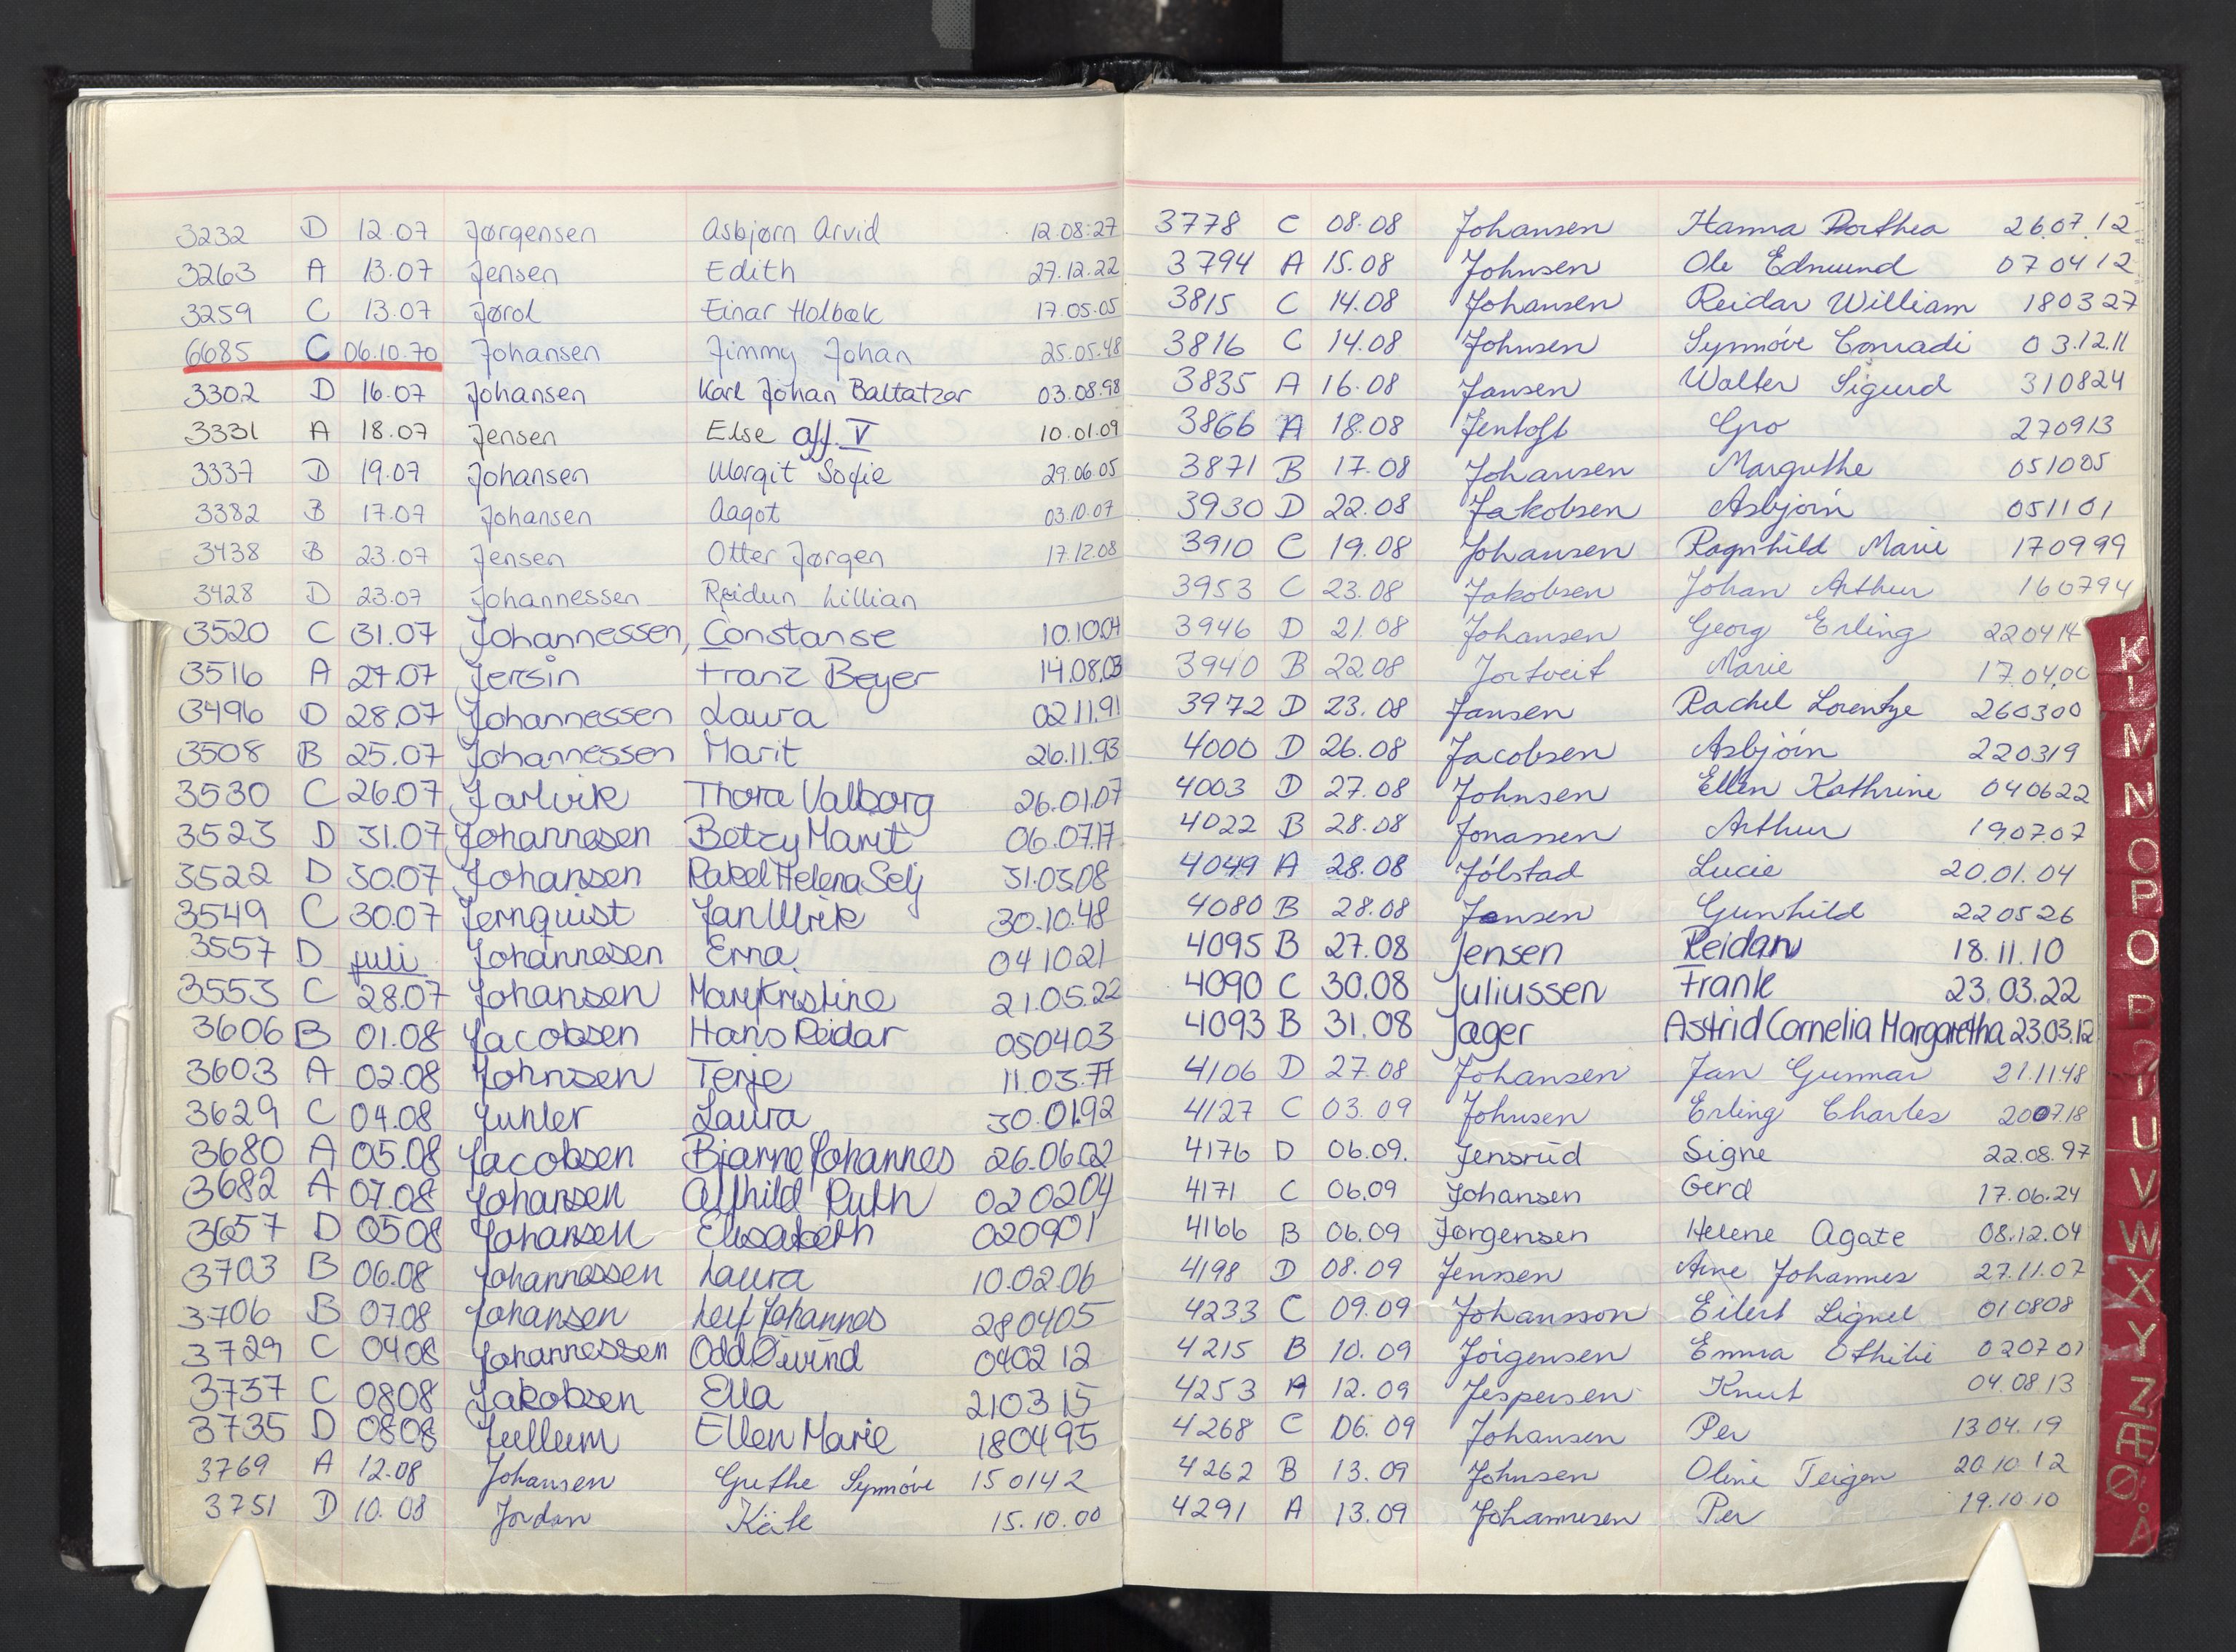 3232 D 12.07 Jørgensen Asbjørn Arvid 12.08.27
3263 A 13.07 Jensen Edith 27.12.22
3259 C 13.07 Jørol Einar Holbæk 17.05.05
6685 C 06.10.70 Johansen Jimmy Johan 25.05.48
3302 D 16.07 Johansen Karl Johan Baltatzar 03.08.98
3331 A 18.07 Jensen Else aff. V 10.01.09
3337 D 19.07 Johansen Margit Sofie 29.06.05
3382 B 17.07 Johansen Aagot 03.10.07
3438 B 23.07 Jensen Otter Jørgen 17.12.08
3428 D 23.07 Johannessen Reidun Lillian
3520 C 31.07 Johannessen, Constanse 10.10.04
3516 A 27.07 Jersin Franz Beyer 14.08.03
3496 D 28.07 Johannessen Laura 02.11.91
3508 B 25.07 Johannessen Marit 26.11.93
3530 C 26.07 Jarlvik Thora Valborg 26.01.07
3523 D 31.07 Johannesen Betzy Marit 06.07.17
3522 D 30.07 Johansen Rakel Helena Selj 31.03.08
3549 C 30.07 Jernquist Jan Ulrik 30.10.48
3557 D juli Johannesen Erna 041021
3553 C 28.07 Johansen Mary Kristine 21.05.22
3606 B 01.08 Jacobsen Hans Reidar 050403
3603 A 02.08 Johnsen Terje 11.03.77
3629 C 04.08 Juhler Laura 30.01.92
3680 A 05.08 Jacobsen Bjarne Johannes 26.06.02
3682 A 07.08 Johansen Alfhild Ruth 020204
3657 D 0508 Johansen Elisabeth 020901
3703 B 06.08 Johannessen Laura 10.02.06
3706 B 07.08 Johansen Leif Johannes 280405
3729 C 0408 Johannessen Odd Øivind 040212
3737 C 0808 Jakobsen Ella 210315
3735 D 0808 Jullum Ellen Marie 180495
3769 A 12.08 Johansen Grethe Synnöve 150142
3751 D 10.08 Jordan Käte 15.10.00
3778 C 08.08 Johansen Hanna Dorthea 26.07.12
3794 A 15.08 Johnsen Ole Edmund 070412
3815 C 14.08 Johansen Reidar William 180327
3816 C 14.08 Johnsen Synnöve Conradi 03.12.11
3835 A 16.08 Jansen Walter Sigurd 310824
3866 A 18.08 Jentoft Gro 270913
3871 B 17.08 Johansen Margrethe 051005
3930 D 22.08 Jakobsen Asbjörn 051101
3910 C 19.08 Johansen Ragnhild Marie 170999
3953 C 23.08 Jakobsen Johan Arthur 160794
3946 D 21.08 Johansen Georg Erling 220414
3940 B 22.08 Jortveit Marie 17.04.00
3972 D 23.08 Jansen Rachel Lorentze 260300
4000 D 26.08 Jacobsen Asbjörn 220319
4003 D 27.08 Johnsen Ellen Kathrine 040622
4022 B 28.08 Jonassen Arthur 19.07.07
4049 A 28.08 Jölstad Lucie 20.01.04
4080 B 28.08 Jensen Gunhild 220526
4095 B 27.08 Jensen Reidar 18.11.10
4090 C 30.08 Juliussen Frank 23.03.22
4093 B 31.08 Jager Astrid Cornelia Margaretha 23.03.12
4106 D 27.08 Johansen Jan Gunnar 21.11.48
4127 C 03.09 Johnsen Erling Charles 200718
4176 D 06.09. Jensrud Signe 22.08.97
4171 C 06.09 Johansen Gerd 17.06.24
4166 B 06.09 Jørgensen Helene Agate 08.12.04
4198 D 08.09 Jenssen Arne Johannes 27.11.07
4233 C 09.09 Johansson Eilert Lignel 010808
4215 B 10.09 Jörgensen Emma Othilie 020701
4253 A 12.09 Jespersen Knut 04.08.13
4268 C 06.09 Johansen Per 1304.19
4262 B 13.09 Johnsen Oline Teigen 20.10.12
4291 A 13.09 Johannesen Per 19.10.10
K
L
M
N
O
P
Q
R
U
V
W
X
Y
Z
Æ
Ø
Å